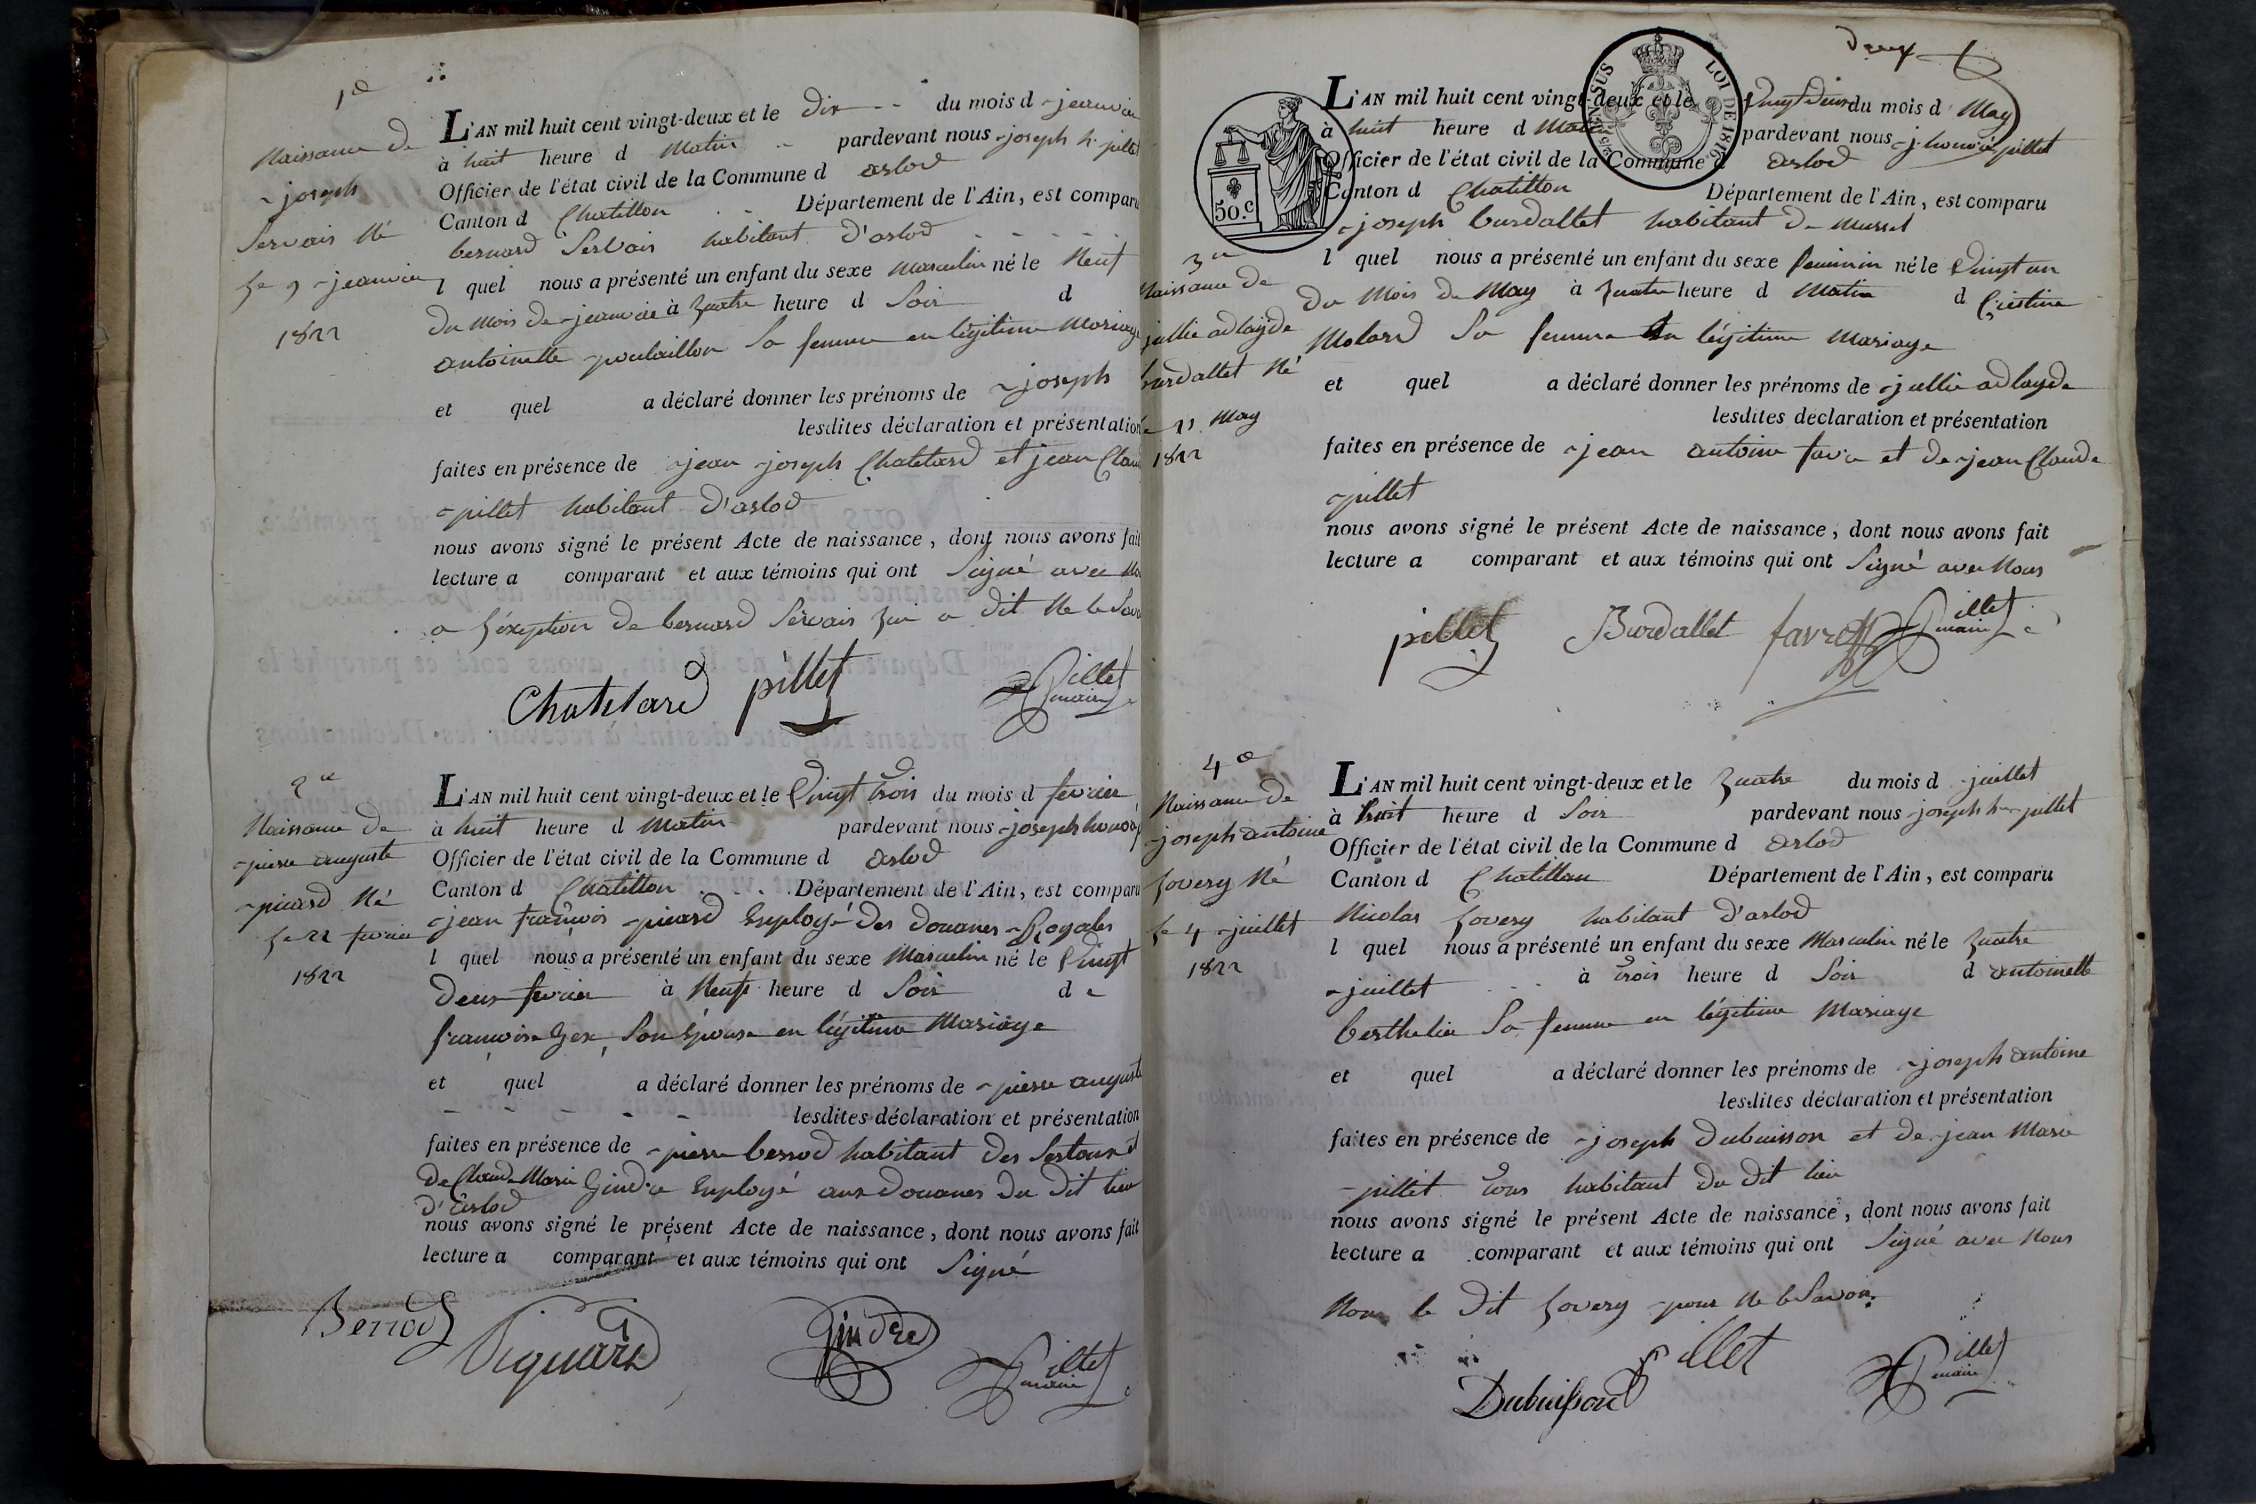 1e
Naissance de
joseph
Servais Né
Le 9 jeanvier
1822
L'AN mil huit cent vingt-deux et le dix du mois d jeanvier
à huit heure d Matin pardevant nous joseph h. pillet
Officier de l'état civil de la Commune d arlod
Canton d Chatillon Département de l'Ain, est comparu
bernard Servais habitant d'arlod
l quel nous a présenté un enfant du sexe Masculin né le Neuf
du Mois de jeanvie à quatre heure d Soir d
antoinette poulaillon Sa femme en légitime Mariage
et quel a déclaré donner les prénoms de joseph
lesdites déclaration et présentation
faites en présence de jean joseph Chatelard et jean Claude
pillet habitant d'arlod
nous avons signé le présent Acte de naissance, dont nous avons fait
lecture a comparant et aux témoins qui ont Signé avec Nous
a L'éxeption de bernard Servais qui a dit Ne le Savoir
Chatelard pillet Pillet maire
2e
Naissance de
pierre auguste
picard Né
Le 22 fevrier
1822
L'AN mil huit cent vingt-deux et le Vingt trois du mois d fevrier
à huit heure d Matin pardevant nous joseph honoré p
Officier de l'état civil de la Commune d arlod
Canton d Chatillon Département de l'Ain, est comparu
jean françois picard Employé des douanes Royales
l quel nous a présenté un enfant du sexe Masculin né le Vingt
deux fevrier à Neuf heure d Soir d e
françoise gex Son Epouse en légitime Mariage
et quel a déclaré donner les prénoms de pierre auguste
lesdites déclaration et présentation
faites en présence de pierre berrod habitant des et
de Claude Marie Gindre Employé aux douanes du dit lieu
d'arlod
nous avons signé le présent Acte de naissance, dont nous avons fait
lecture a comparant et aux témoins qui ont Signé
Berrod Piquard Gindre Pillet maire
deux
50.c
LOI DE 1816
3e
Naissance de
jullie adlayde
burdallet Né
le 21 May
1822
L'AN mil huit cent vingt-deux et le Vingt deux du mois d May
à huit heure d Matin pardevant nous j. honoré pillet
Officier de l'état civil de la Commune d arlod
Canton d Chatillon Département de l'Ain, est comparu
joseph burdallet habitant de Mussel
l quel nous a présenté un enfant du sexe feminin né le Vingt un
du Mois de May à quatre heure d Matin d Cristine
Molard Sa femme en légitime Mariage
et quel a déclaré donner les prénoms de jullie adlayde
lesdites déclaration et présentation
faites en présence de jean antoine favre et de jean Claude
pillet
nous avons signé le présent Acte de naissance, dont nous avons fait
lecture a comparant et aux témoins qui ont Signé avec Nous
pillet Burdallet favre Pillet maire
4e
Naissance de
joseph antoine
Lovery Né
Le 4 juillet
1822
L'AN mil huit cent vingt-deux et le quatre du mois d juillet
à huit heure d Soir pardevant nous joseph hre pillet
Officier de l'état civil de la Commune d arlod
Canton d Chatillon Département de l'Ain, est comparu
Nicolas Lovery habitant d'arlod
l quel nous a présenté un enfant du sexe Masculin né le quatre
juillet à trois heure d Soir d antoinette
berthelier Sa femme en légitime Mariage
et quel a déclaré donner les prénoms de joseph antoine
lesdites déclaration et présentation
faites en présence de joseph dubuisson et de jean Marie
pillet tous habitant du dit lieu
nous avons signé le présent Acte de naissance, dont nous avons fait
lecture a comparant et aux témoins qui ont Signé avec Nous
Non le dit Lovery pour Ne le Savoir
Dubuisson Pillet Pillet maire